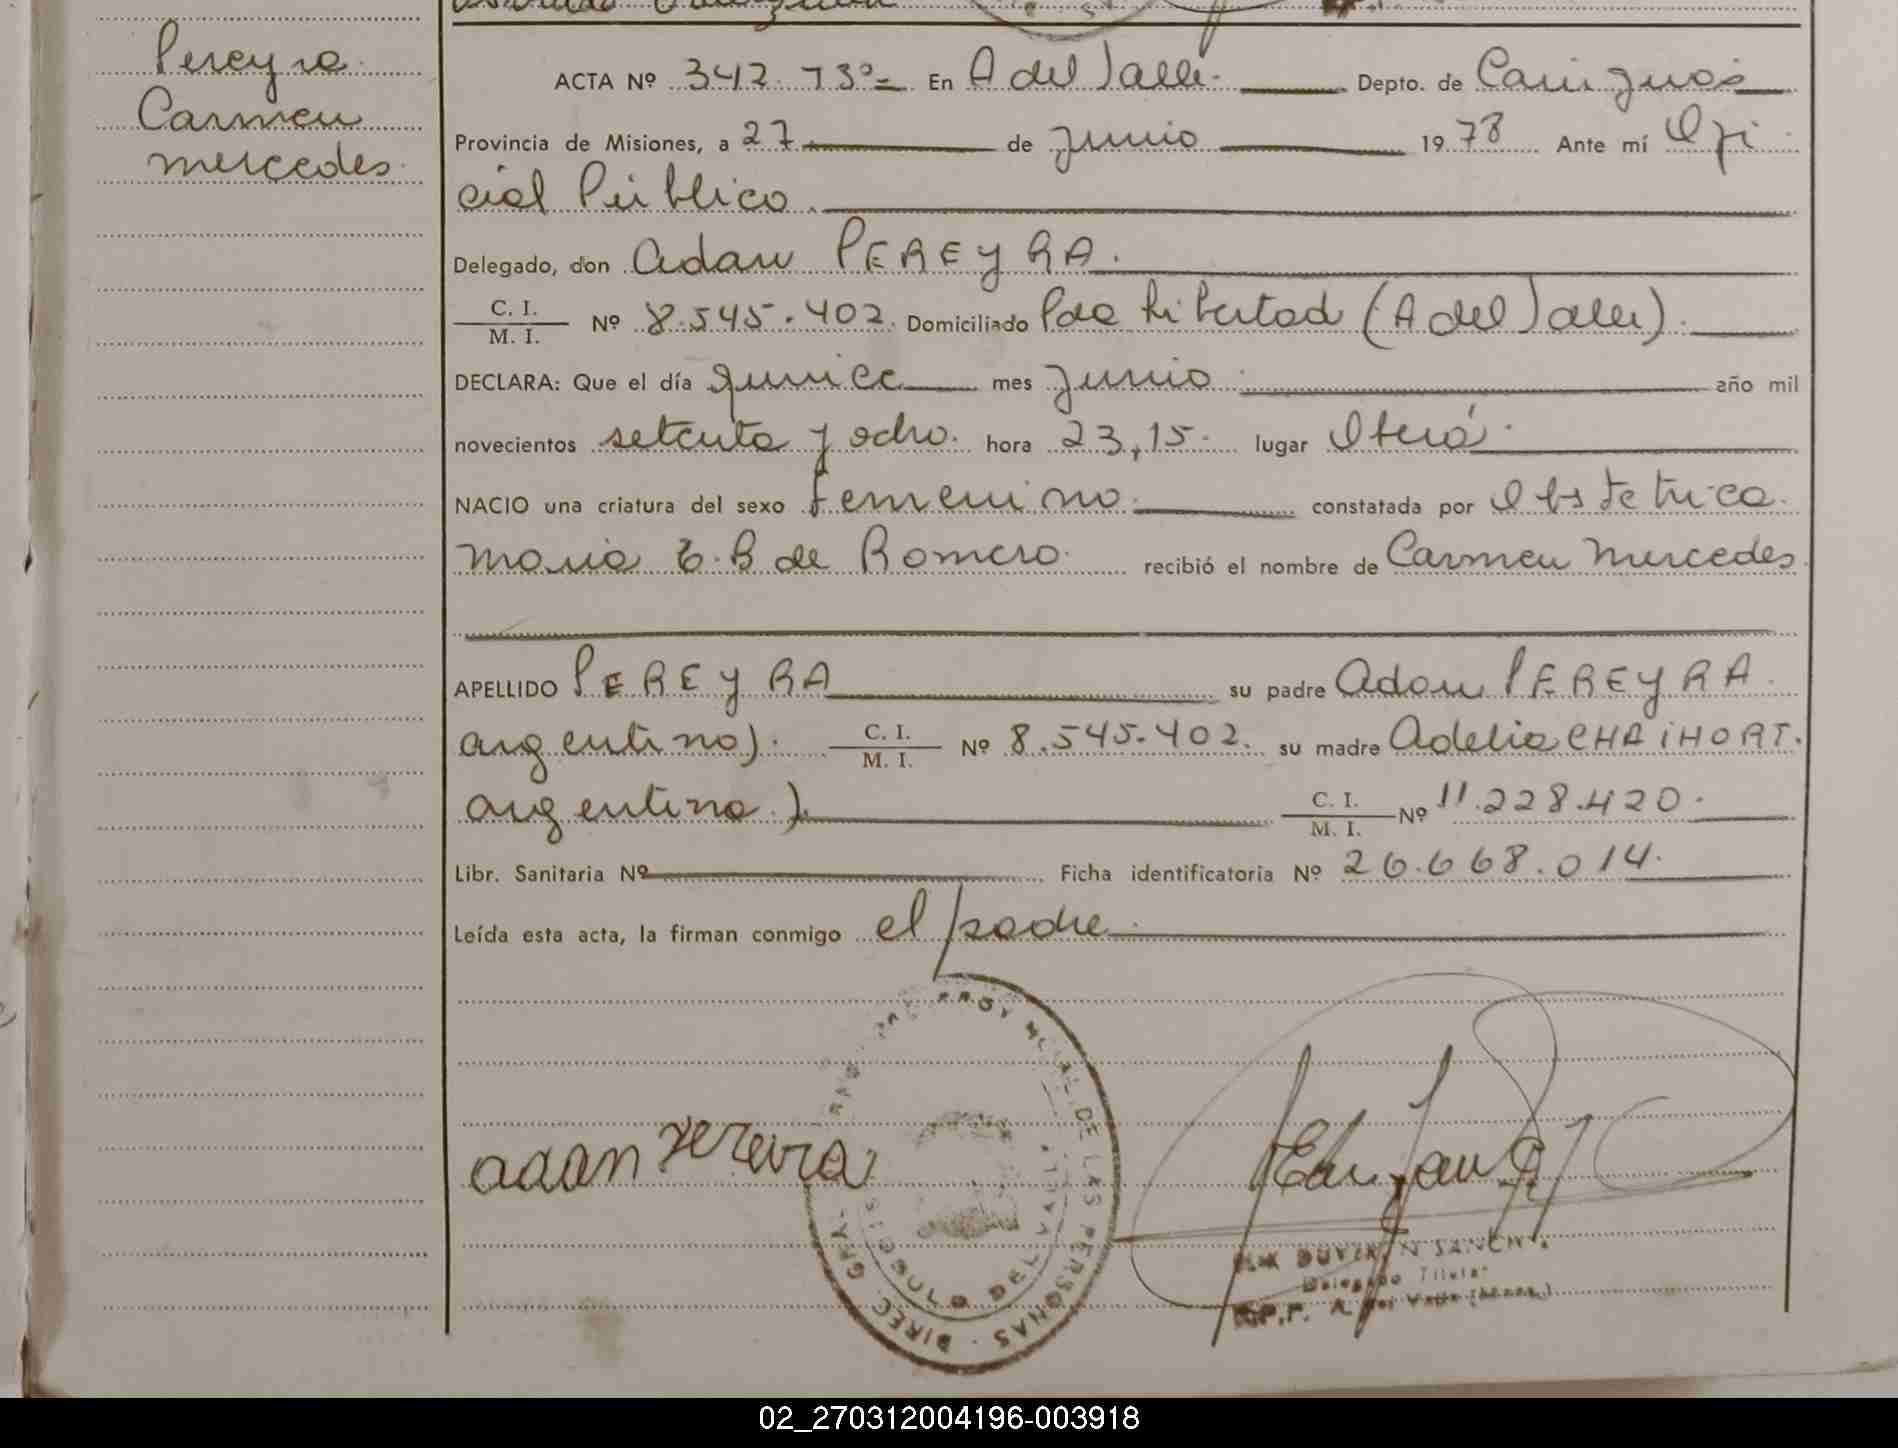 Pereyra
Carmen
mercedes
ACTA Nº 342 T3º= En A del Valle. Depto. de Cainguas
Provincia de Misiones, a 27 de junio 1978 Ante mí Ofi
cial Público.
Delegado, don Adan PEREYRA.
C. I.
M. I. Nº 8.545.402. Domiciliado Pdo Libertad (A del Valle).
DECLARA: Que el día quince mes junio año mil
novecientos setenta y ocho. hora 23,15. lugar Oberá.
NACIO una criatura del sexo femenino. constatada por Obstetrica
Maria E. B de Romero. recibió el nombre de Carmen Mercedes.
APELLIDO PEREYRA su padre Adan PEREYRA.
argentino). C. I.
M. I. Nº 8.545.402. su madre Adelia CHAIHORT.
argentina.) C. I.
M. I. Nº 11.228.420.
Libr. Sanitaria Nº Ficha identificatoria Nº 26.668.014.
Leída esta acta, la firman conmigo el padre.
adan Pereira
DIREC. GRAL. DE LAS PERSONAS
DEL
Delegado Titular
02_270312004196-003918